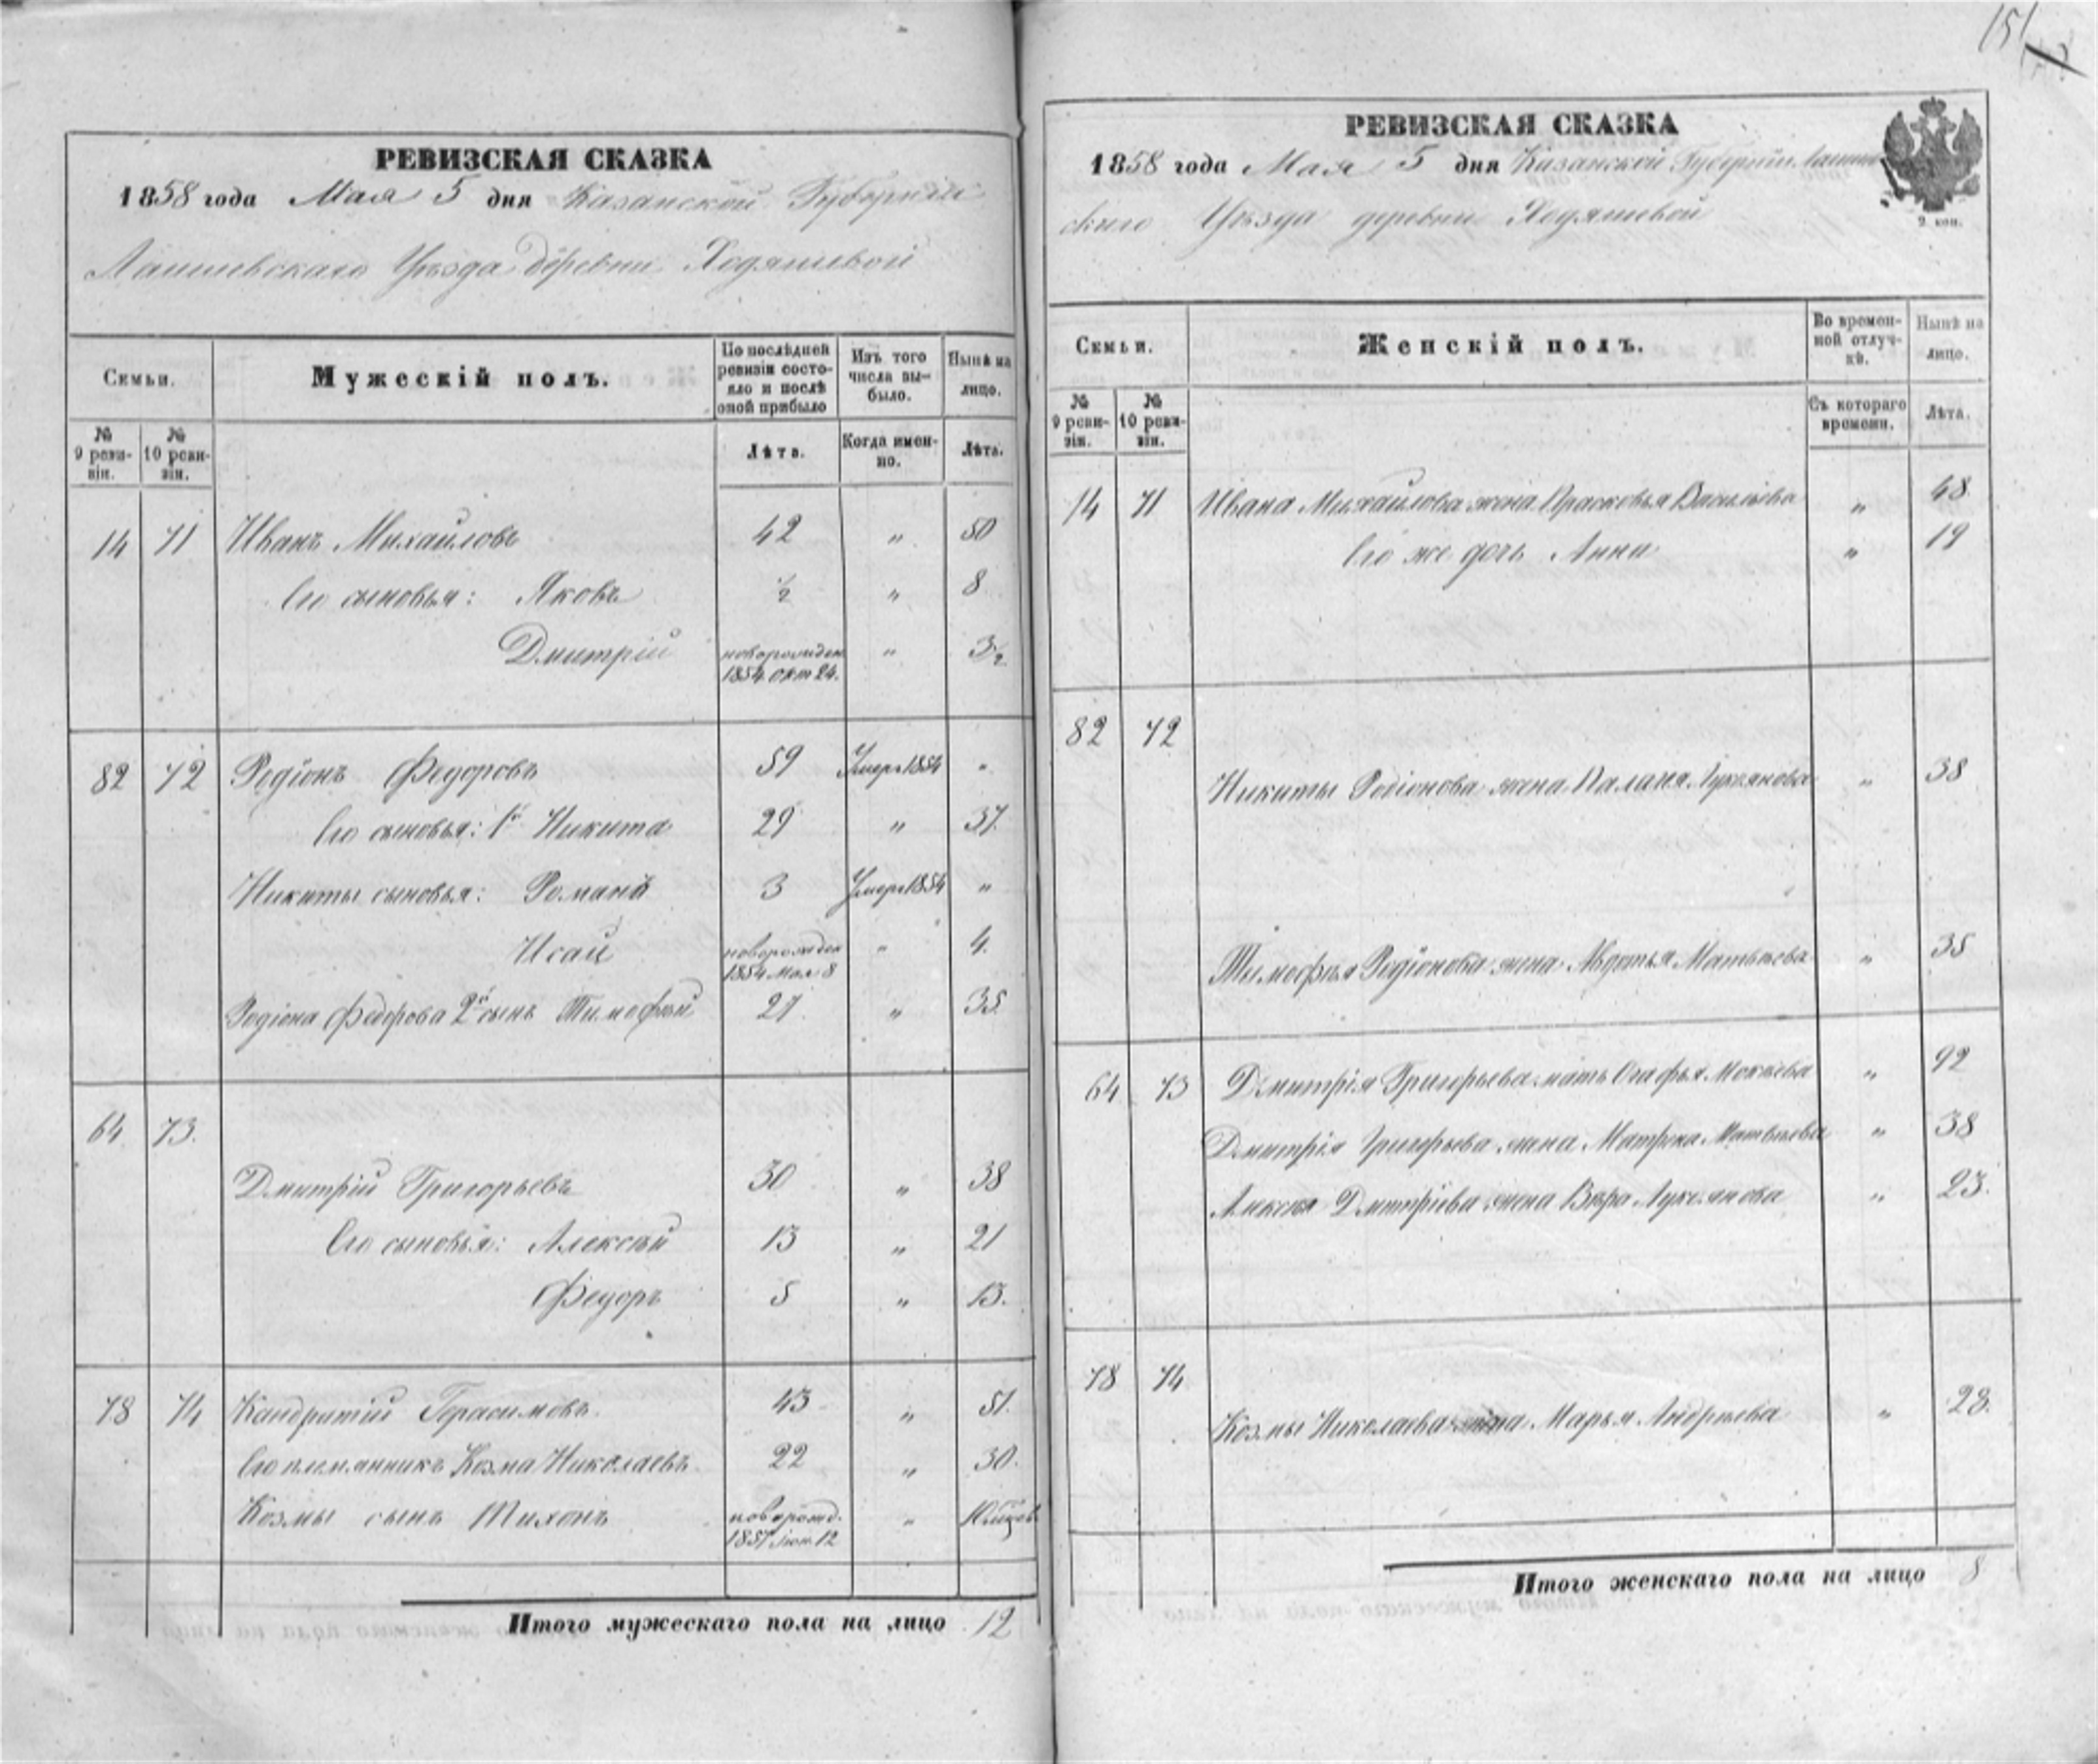 151
РЕВИЗСКАЯ СКАЗКА
1858 года Мая 5 дня Казанской Губерніи
Лаишевскаго Уѣзда деревни Ходяшевой
Семьи.
Мужескій полъ.
По послѣдней ревизіи состояло и послѣ оной прибыло
Изъ того числа выбыло.
Нынѣ на лицо.
№ 9 ревизіи.
№ 10 ревизіи.
Лѣта.
Когда именно.
Лѣта.
14 71 Иванъ Михайловъ 42 " 50
Его сыновья: Яковъ 1/2 " 8
Дмитрій новорожден " 3 1/2
1854 окт 24.
82 72 Родіонъ Федоровъ 59 Умеръ 1854 "
Его сыновья: 1й Никита 29 " 37.
Никиты сыновья: Романъ 3 Умеръ 1854 "
Исай новорожден " 4.
1854 мая 8
Родіона Федорова 2й сынъ Тимофѣй 27. " 35.
64 73.
Дмитрій Григорьевъ 30 " 38
Его сыновья: Алексѣй 13 " 21
Федоръ 5 " 13.
78 74 Кандратій Герасимовъ. 43 " 51.
Его племянникъ Козма Николаевъ. 22 " 30.
Козмы сынъ Тихонъ новорожд. "
1857 іюн. 12
Итого мужескаго пола на лицо 12
РЕВИЗСКАЯ СКАЗКА
1858 года Мая 5 дня Казанской Губерніи Лаишев
скаго Уѣзда деревни Ходяшевой
2 коп.
Семьи.
Женскій полъ.
Во временной отлучкѣ.
Нынѣ на лицо.
№ 9 ревизіи.
№ 10 ревизіи.
Съ котораго времени.
Лѣта.
14 71 Ивана Михайлова жена Прасковья Васильева " 48
Его же дочь Анна " 19
82 72
Никиты Родіонова жена Палагѣя Лукьянова " 38
Тимофѣя Родіонова жена Авдотья Матвѣева " 35
64 73 Дмитрія Григорьева мать Огафья Мокѣева " 92
Дмитрія Григорьева жена Матрена Матвѣева " 38
Алексѣя Дмитріева жена Вѣра Лукьянова " 23.
78 74
Козмы Николаева жена Марья Андрѣева " 28.
Итого женскаго пола на лицо 8